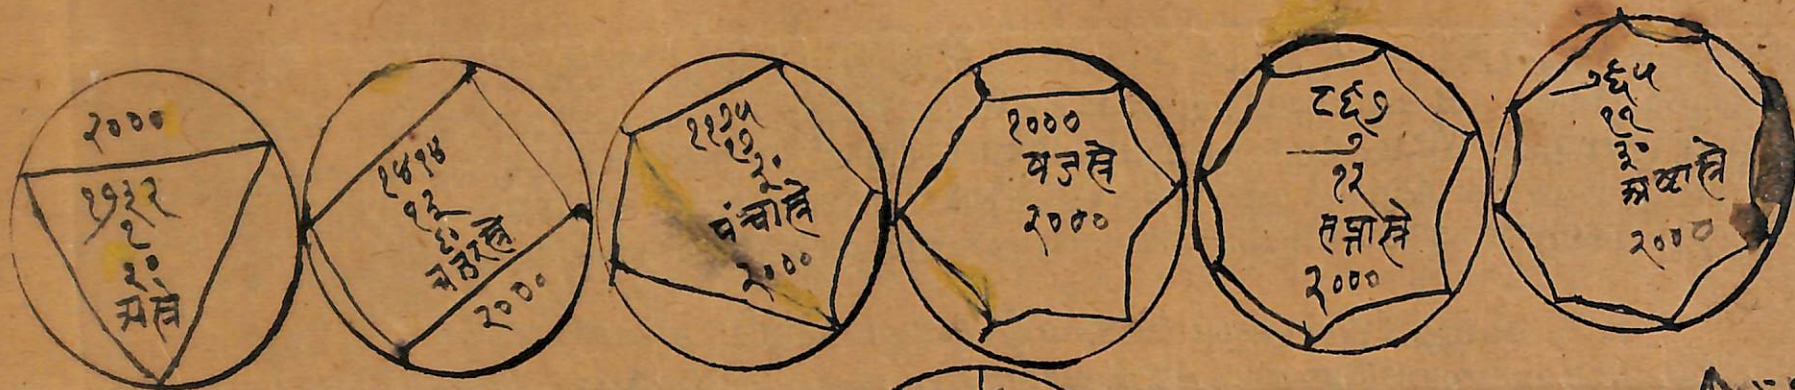 २०००
१७३२
१
२०
त्र्यस्रे
१४१४
१३
६०
चतुरस्रे
२०००
११७५
१७
३०
पंचास्रे
२०००
१०००
षडस्रे
२०००
८६७
७
१२
सप्तास्रे
२०००
७६५
११
३०
अष्टास्रे
२०००